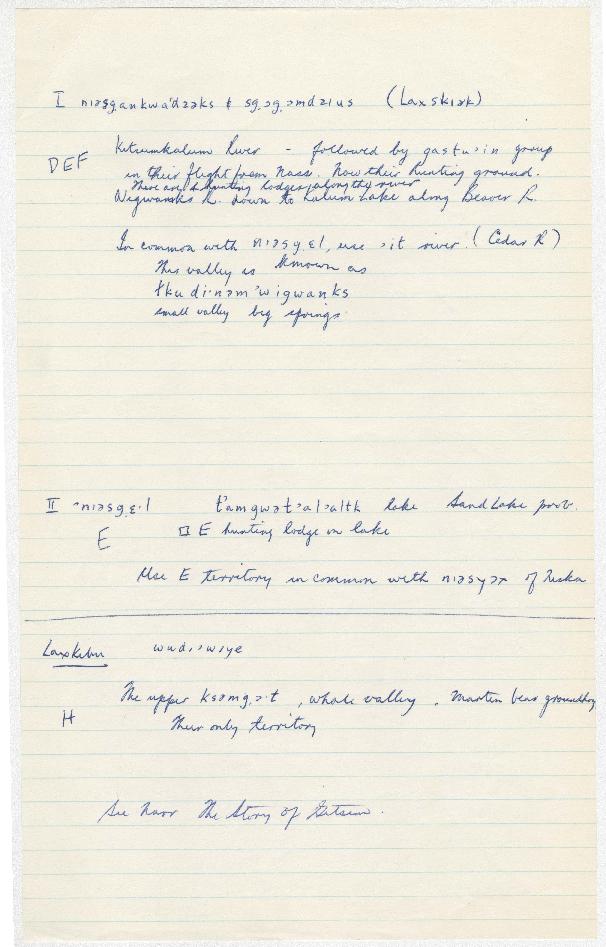 I niəsgankwa'dzəks & sg.əg.əmdzius (Laxskiək)
DEF
Kitsumkalum River - followed by gastu·in group
in their flight from Nass. Now their hunting ground.
There are 3 hunting lodges along the river
Wigwanks R. down to Kalum Lake along Beaver R.
In common with niəsg.ɛ·l, use ɔit river. (Cedar R)
This valley is known as
łku di·nəm 'wigwanks
small valley big springs.
II niəsg.ɛ·l t'amgwət'al'alth lake Sand Lake prob.
E
□ E hunting lodge on lake
Use E territory in common with niəsyəx of Neska
Laxkibu wudi·wiye
The upper ksəmg.ɔ·t, whole valley. Marten bear groundhog
H
Their only territory
See Narr The Story of Gitsum.